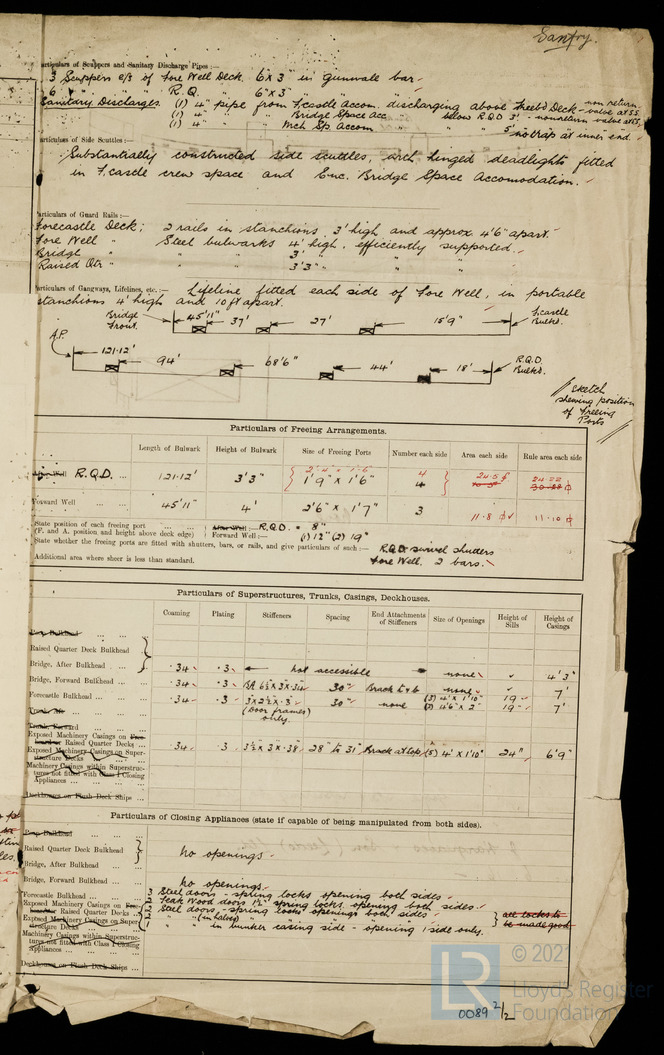 Sanfry.
Particulars of Scuppers and Sanitary Discharge Pipes:—
3 Scuppers e/s of Fore Well Deck 6 x 3" in gunwale bar
6 " " R.Q. " 6" x 3" "
Sanitary Discharges. (1) 4" pipe from F.castle Accom. discharging above Freebd Deck - non return valve at S.S.
(1) 4" " Bridge Space Acc. " below R.Q.D 3' - nonreturn valve at S.S.
(1) 4" " Mch Sp. Accom " " 5' no trap at inner end.
Particulars of Side Scuttles:—
Substantially constructed side scuttles, with hinged deadlights fitted
in F.castle crew space and Enc. Bridge Space Accomodation.
Particulars of Guard Rails:—
Forecastle Deck; 2 rails in stanchions 3' high and approx 4'6" apart.
Fore Well " Steel bulwarks 4' high, efficiently supported.
Bridge " " " 3' " " "
Raised Qtr " " " 3'3" " " "
Particulars of Gangways, Lifelines, etc.:— Lifeline fitted each side of Fore Well, in portable
stanchions 4' high and 10 ft apart.
Bridge Front. 45'11" 37' 27' 15'9" F.castle Bulkd.
A.P. 121·12' 94' 68'6" 44' 18' R.Q.D. Bulkd.
Sketch
shewing position
of Freeing
Ports
Particulars of Freeing Arrangements.
Length of Bulwark Height of Bulwark Size of Freeing Ports Number each side Area each side Rule area each side
After Well R.Q.D. ... 121·12' 3'3" 2'4" x 1'6" 1'9" x 1'6" 4 4 24·5 24·22
Forward Well 45'11" 4' 2'6" x 1'7" 3 11·8 11·10
State position of each freeing port ... ... After Well:— R.Q.D. = 8"
(F. and A. position and height above deck edge) Forward Well:— (1) 12" (2) 19"
State whether the freeing ports are fitted with shutters, bars, or rails, and give particulars of such:— R.Q.D. swivel shuders
Additional area where sheer is less than standard. Fore Well. 2 bars.
Particulars of Superstructures, Trunks, Casings, Deckhouses.
Coaming Plating Stiffeners Spacing End Attachments of Stiffeners Size of Openings Height of Sills Height of Casings
Poop Bulkhead ... ...
Raised Quarter Deck Bulkhead
Bridge, After Bulkhead ... ... ·34 ·3 not accessible none 4'3"
Bridge, Forward Bulkhead ... ·34 ·3 BA 6½ x 3 x ·34 30" Brack t & b none 7'
Forecastle Bulkhead ... ... ·34 ·3 3 x 2½ x ·3 30" none (3) 4' x 1'10" 19 7'
Trunk, Aft ... ... (Door frames) only. (2) 4'6" x 2' 19"
Trunk, Forward ... ...
Exposed Machinery Casings on Free-
board or Raised Quarter Decks ...
Exposed Machinery Casings on Super-
structure Decks ... ·34 ·3 3½ x 3 x ·38 28" to 31" Brack at top (5) 4' x 1'10" 24" 6'9"
Machinery Casings within Superstruc-
tures not fitted with Class 1 Closing
Appliances ... ...
Deckhouses on Flush Deck Ships ...
Particulars of Closing Appliances (state if capable of being manipulated from both sides).
Poop Bulkhead ... ...
Raised Quarter Deck Bulkhead
no openings.
Bridge, After Bulkhead ...
Bridge, Forward Bulkhead ... no openings.
Forecastle Bulkhead ... 3 Steel doors - spring locks opening both sides
Exposed Machinery Casings on Free- 2 Teak Wood doors 1½" spring locks opening both sides
board or Raised Quarter Decks ... Steel doors - spring locks openings both sides are locks to
Exposed Machinery Casings on Super- " " (in halves) be made good
structure Decks ... 1 " " in bunker casing side - opening 1 side only.
Machinery Casings within Superstruc-
tures not fitted with Class 1 Closing
Appliances ... ...
Deckhouses on Flush Deck Ships ...
© 2021
LR
Lloyd's Register
Foundation
0089 2/2